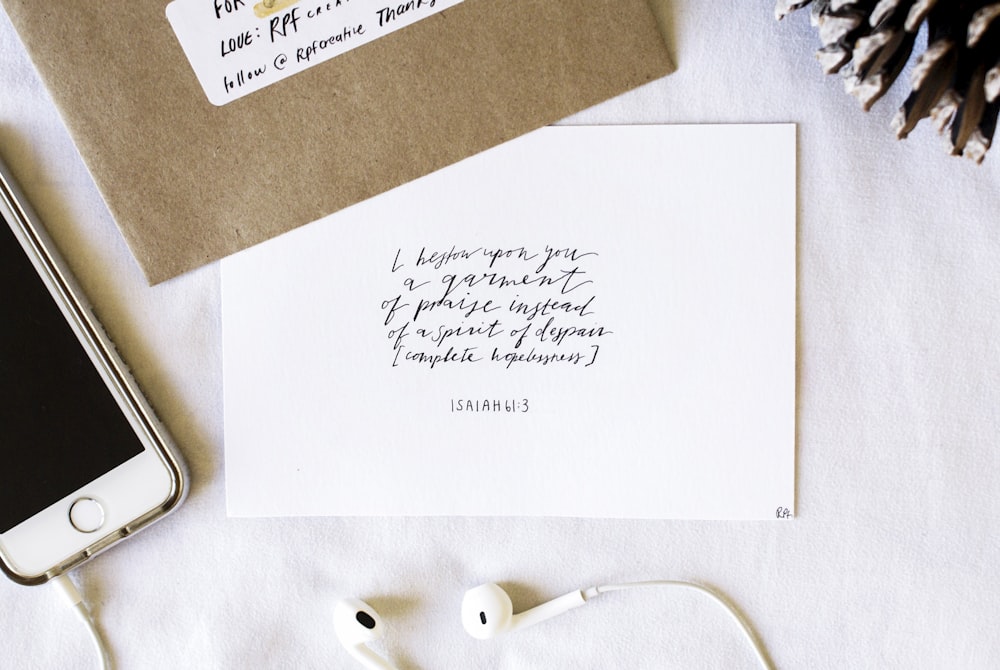 FOR
LOVE: RPF CREAT
follow @ Rpfcreative Thank
I bestow upon you
a garment
of praise instead
of a spirit of despair
[complete hopelessness]
ISAIAH 61:3
RPF